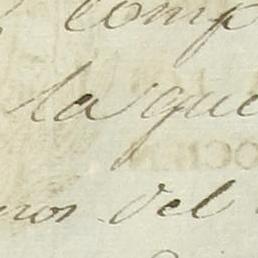 comp
la que
nos del